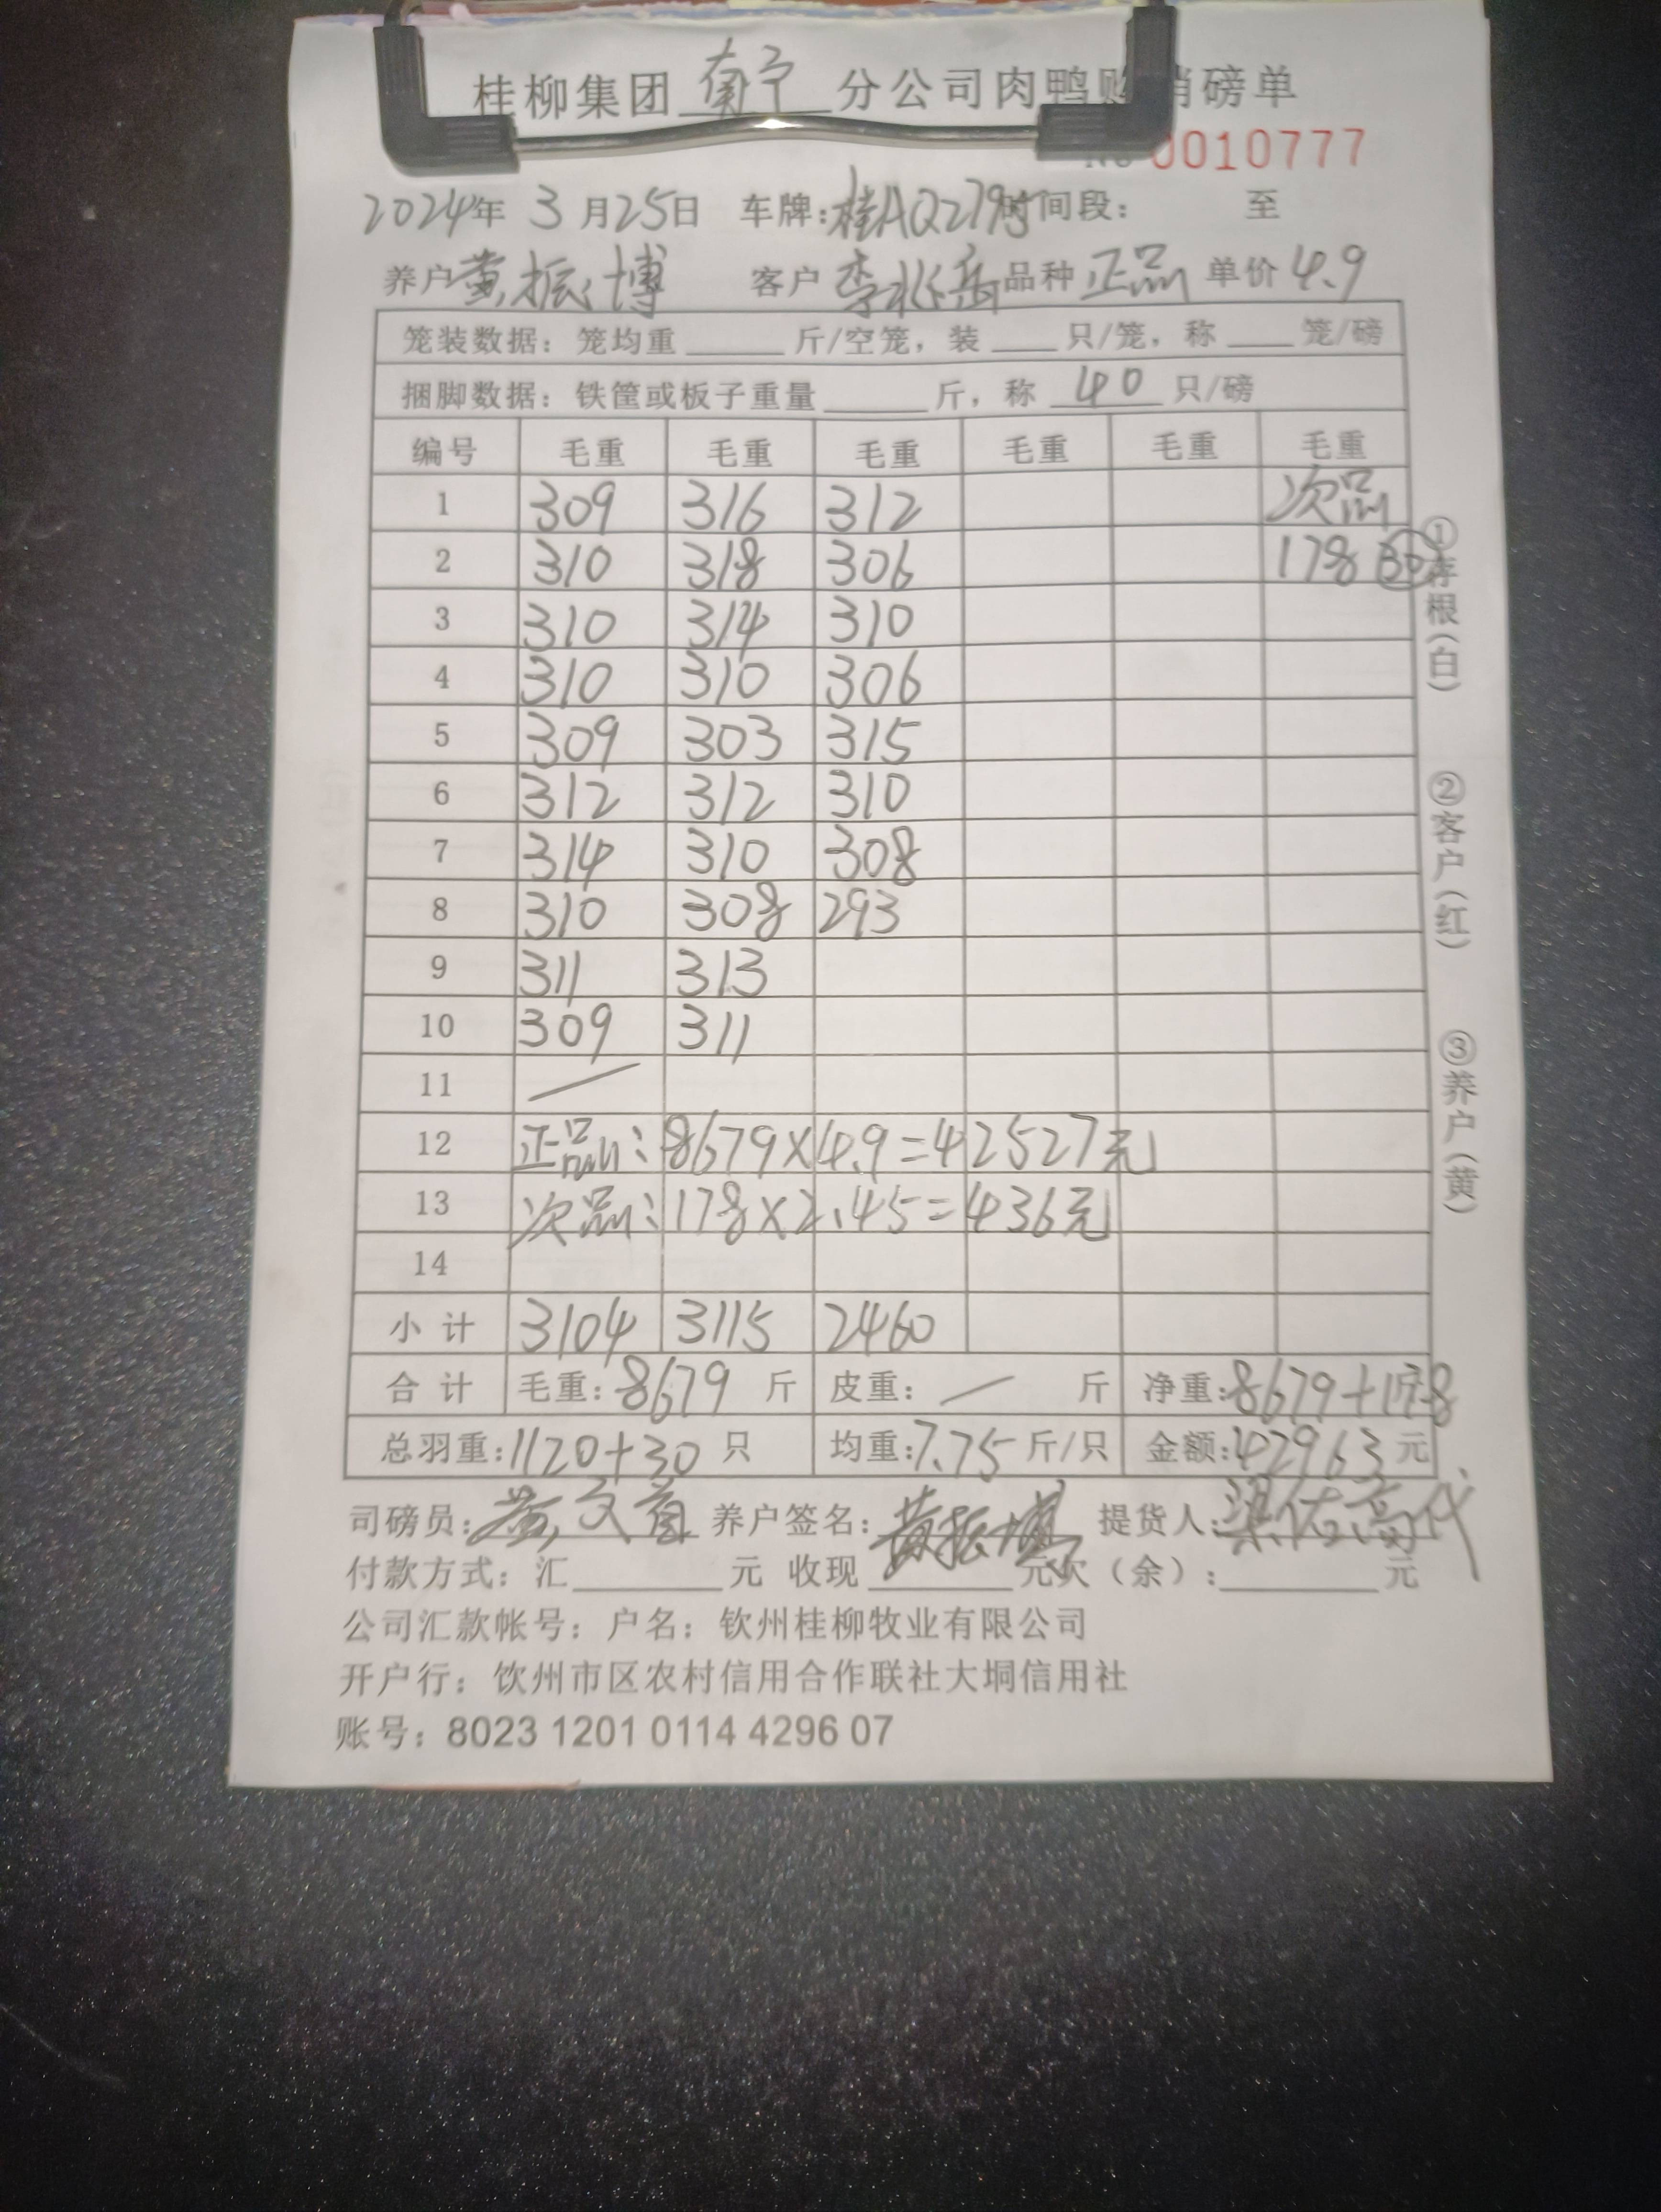 桂柳集团 南宁 分公司肉鸭购销磅单
No 0010777
2024年 3 月25日 车牌:桂AQ279 时间段: 至
养户 黄振博 客户 李兆岳 品种 正品 单价 4.9
笼装数据: 笼均重 ____ 斤/空笼, 装 ___ 只/笼, 称 ___ 笼/磅
捆脚数据: 铁筐或板子重量 ____ 斤, 称 40 只/磅
编号 毛重 毛重 毛重 毛重 毛重 毛重
1 309 316 312 次品
2 310 318 306 178 30
3 310 314 310
4 310 310 306
5 309 303 315
6 312 312 310
7 314 310 308
8 310 308 293
9 311 313
10 309 311
11 /
12 正品: 8679×4.9=42527元
13 次品: 178×2.45=436元
14
小计 3104 3115 2460
合计 毛重: 8679 斤 皮重: / 斤 净重: 8679+178
总羽重: 1120+30 只 均重: 7.75 斤/只 金额: 42963 元
司磅员: 黄文 养户签名: 黄振博 提货人: 代
付款方式: 汇 ____ 元 收现 ____ 元 欠(余): ____ 元
公司汇款帐号: 户名: 钦州桂柳牧业有限公司
开户行: 饮州市区农村信用合作联社大垌信用社
账号: 8023 1201 0114 4296 07
①存根(白)
②客户(红)
③养户(黄)